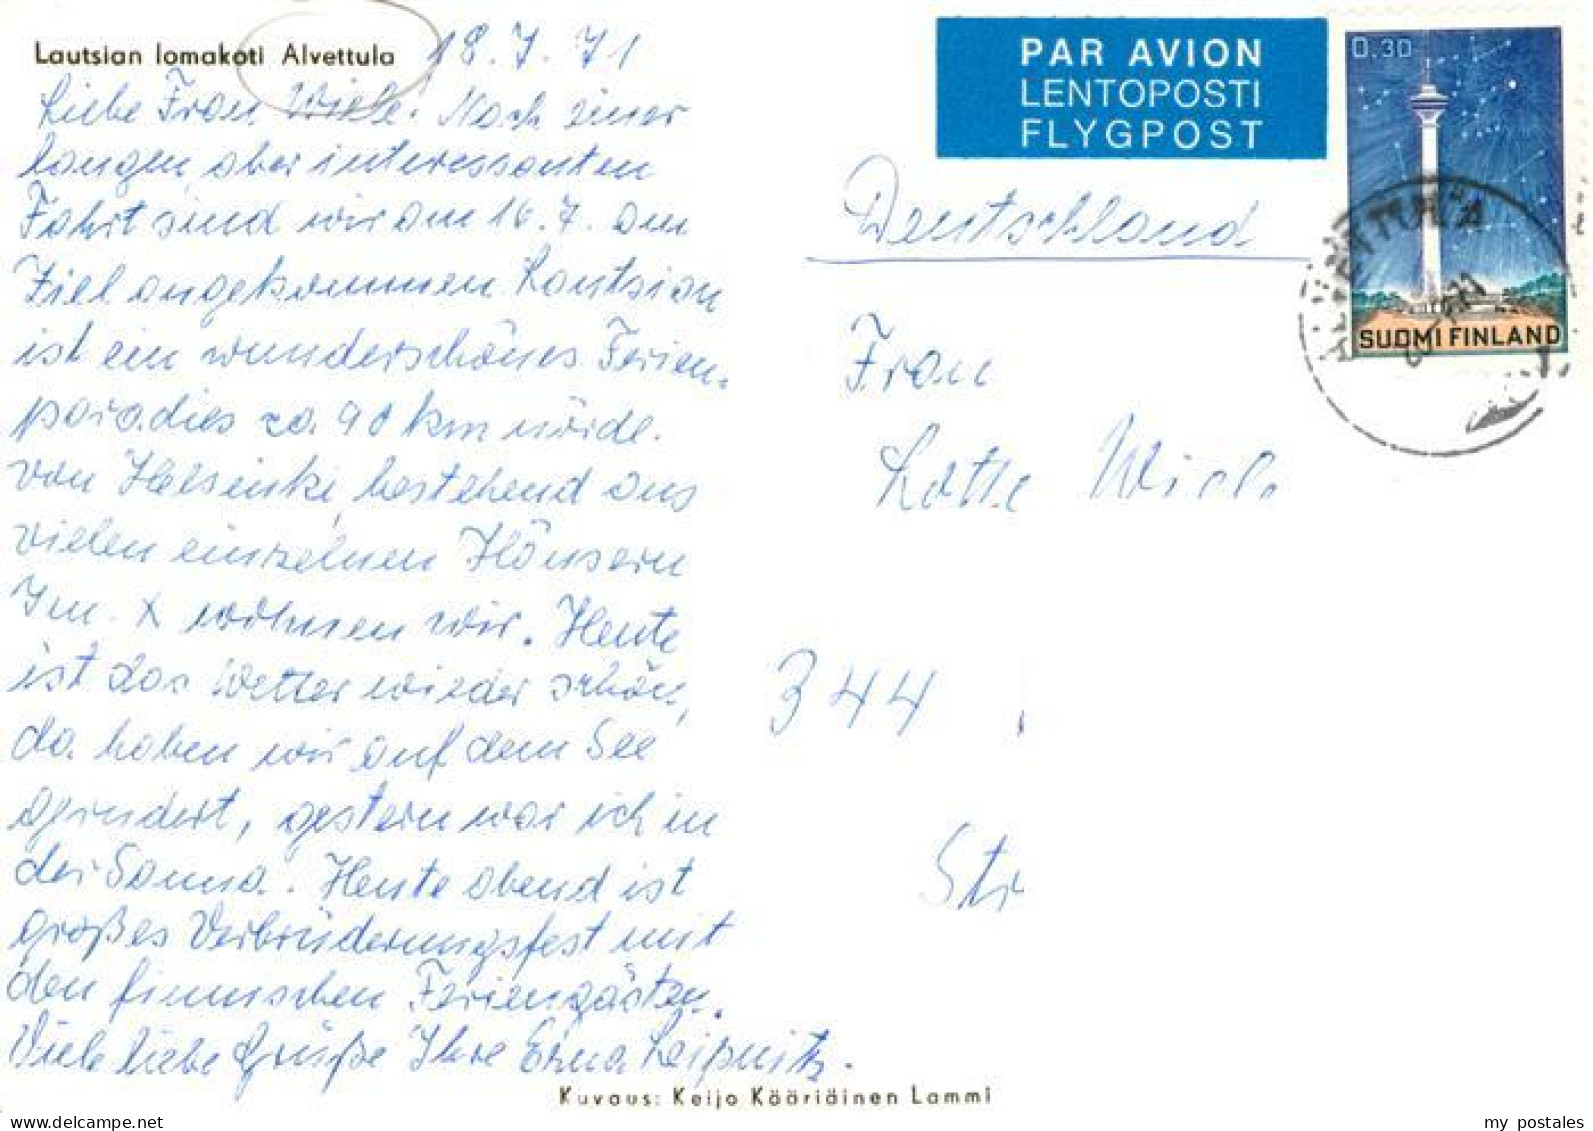 Lautsian lomakoti Alvettula 18.7.71
Liebe Frau Wiele! Nach einer
langen, aber interessanten
Fahrt sind wir am 16.7. am
Ziel angekommen. Lautsian
ist ein wunderschönes Ferien-
paradies ca. 90 km nördl.
von Helsinki, bestehend aus
vielen einzelnen Häusern
Im X wohnen wir. Heute
ist das Wetter wieder schön,
da haben wir auf dem See
gerudert, gestern war ich in
der Sauna. Heute abend ist
großes Verbrüderungsfest mit
den finnischen Feriengästen.
Viele liebe Grüße Ihre Erna Leipnitz.
Kuvaus: Keijo Kääriäinen Lammi
PAR AVION
LENTOPOSTI
FLYGPOST
0.30
SUOMI FINLAND
Deutschland
Frau
Lotte Wiele
344
Str
my postales